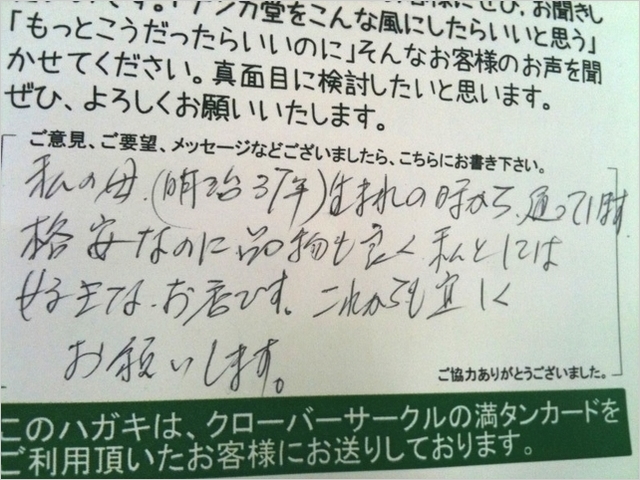 客様にぜひ、お聞きし
カ堂をこんな風にしたらいいと思う」
「もっとこうだったらいいのに」そんなお客様のお声を聞
かせてください。真面目に検討したいと思います。
ぜひ、よろしくお願いいたします。
ご意見、ご要望、メッセージなどございましたら、こちらにお書き下さい。
私の母、(明治37年)生まれの時から、通っています
格安なのに品物も良く私としては
好きな、お店です。これからも宜しく
お願いします。
ご協力ありがとうございました。
このハガキは、クローバーサークルの満タンカードを
ご利用頂いたお客様にお送りしております。